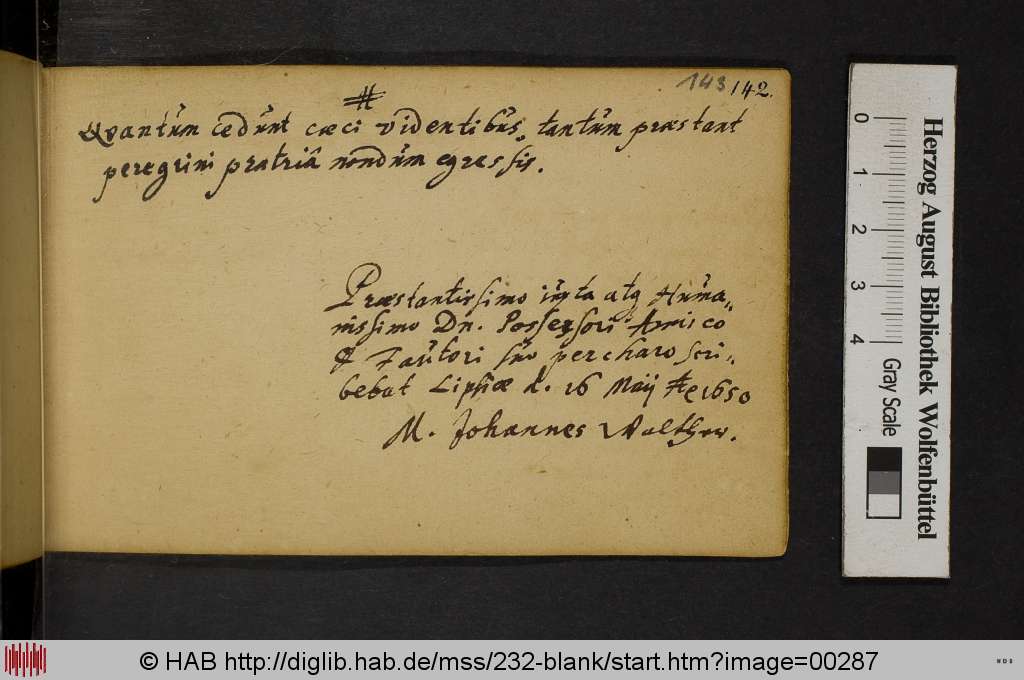 143 142.
Qvantum cedunt cæci videntibus, tantum præstant
peregrini pratriâ nondum egressis.
Præstantissimo iuxta atq Huma„
nissimo Dn. Possessori Amico
& Fautori suo percharo scri„
bebat Lipsiæ d. 16 Maij 1650
M. Johannes Walther.
Herzog August Bibliothek Wolfenbüttel
0 1 2 3 4 Gray Scale
© HAB http://diglib.hab.de/mss/232-blank/start.htm?image=00287